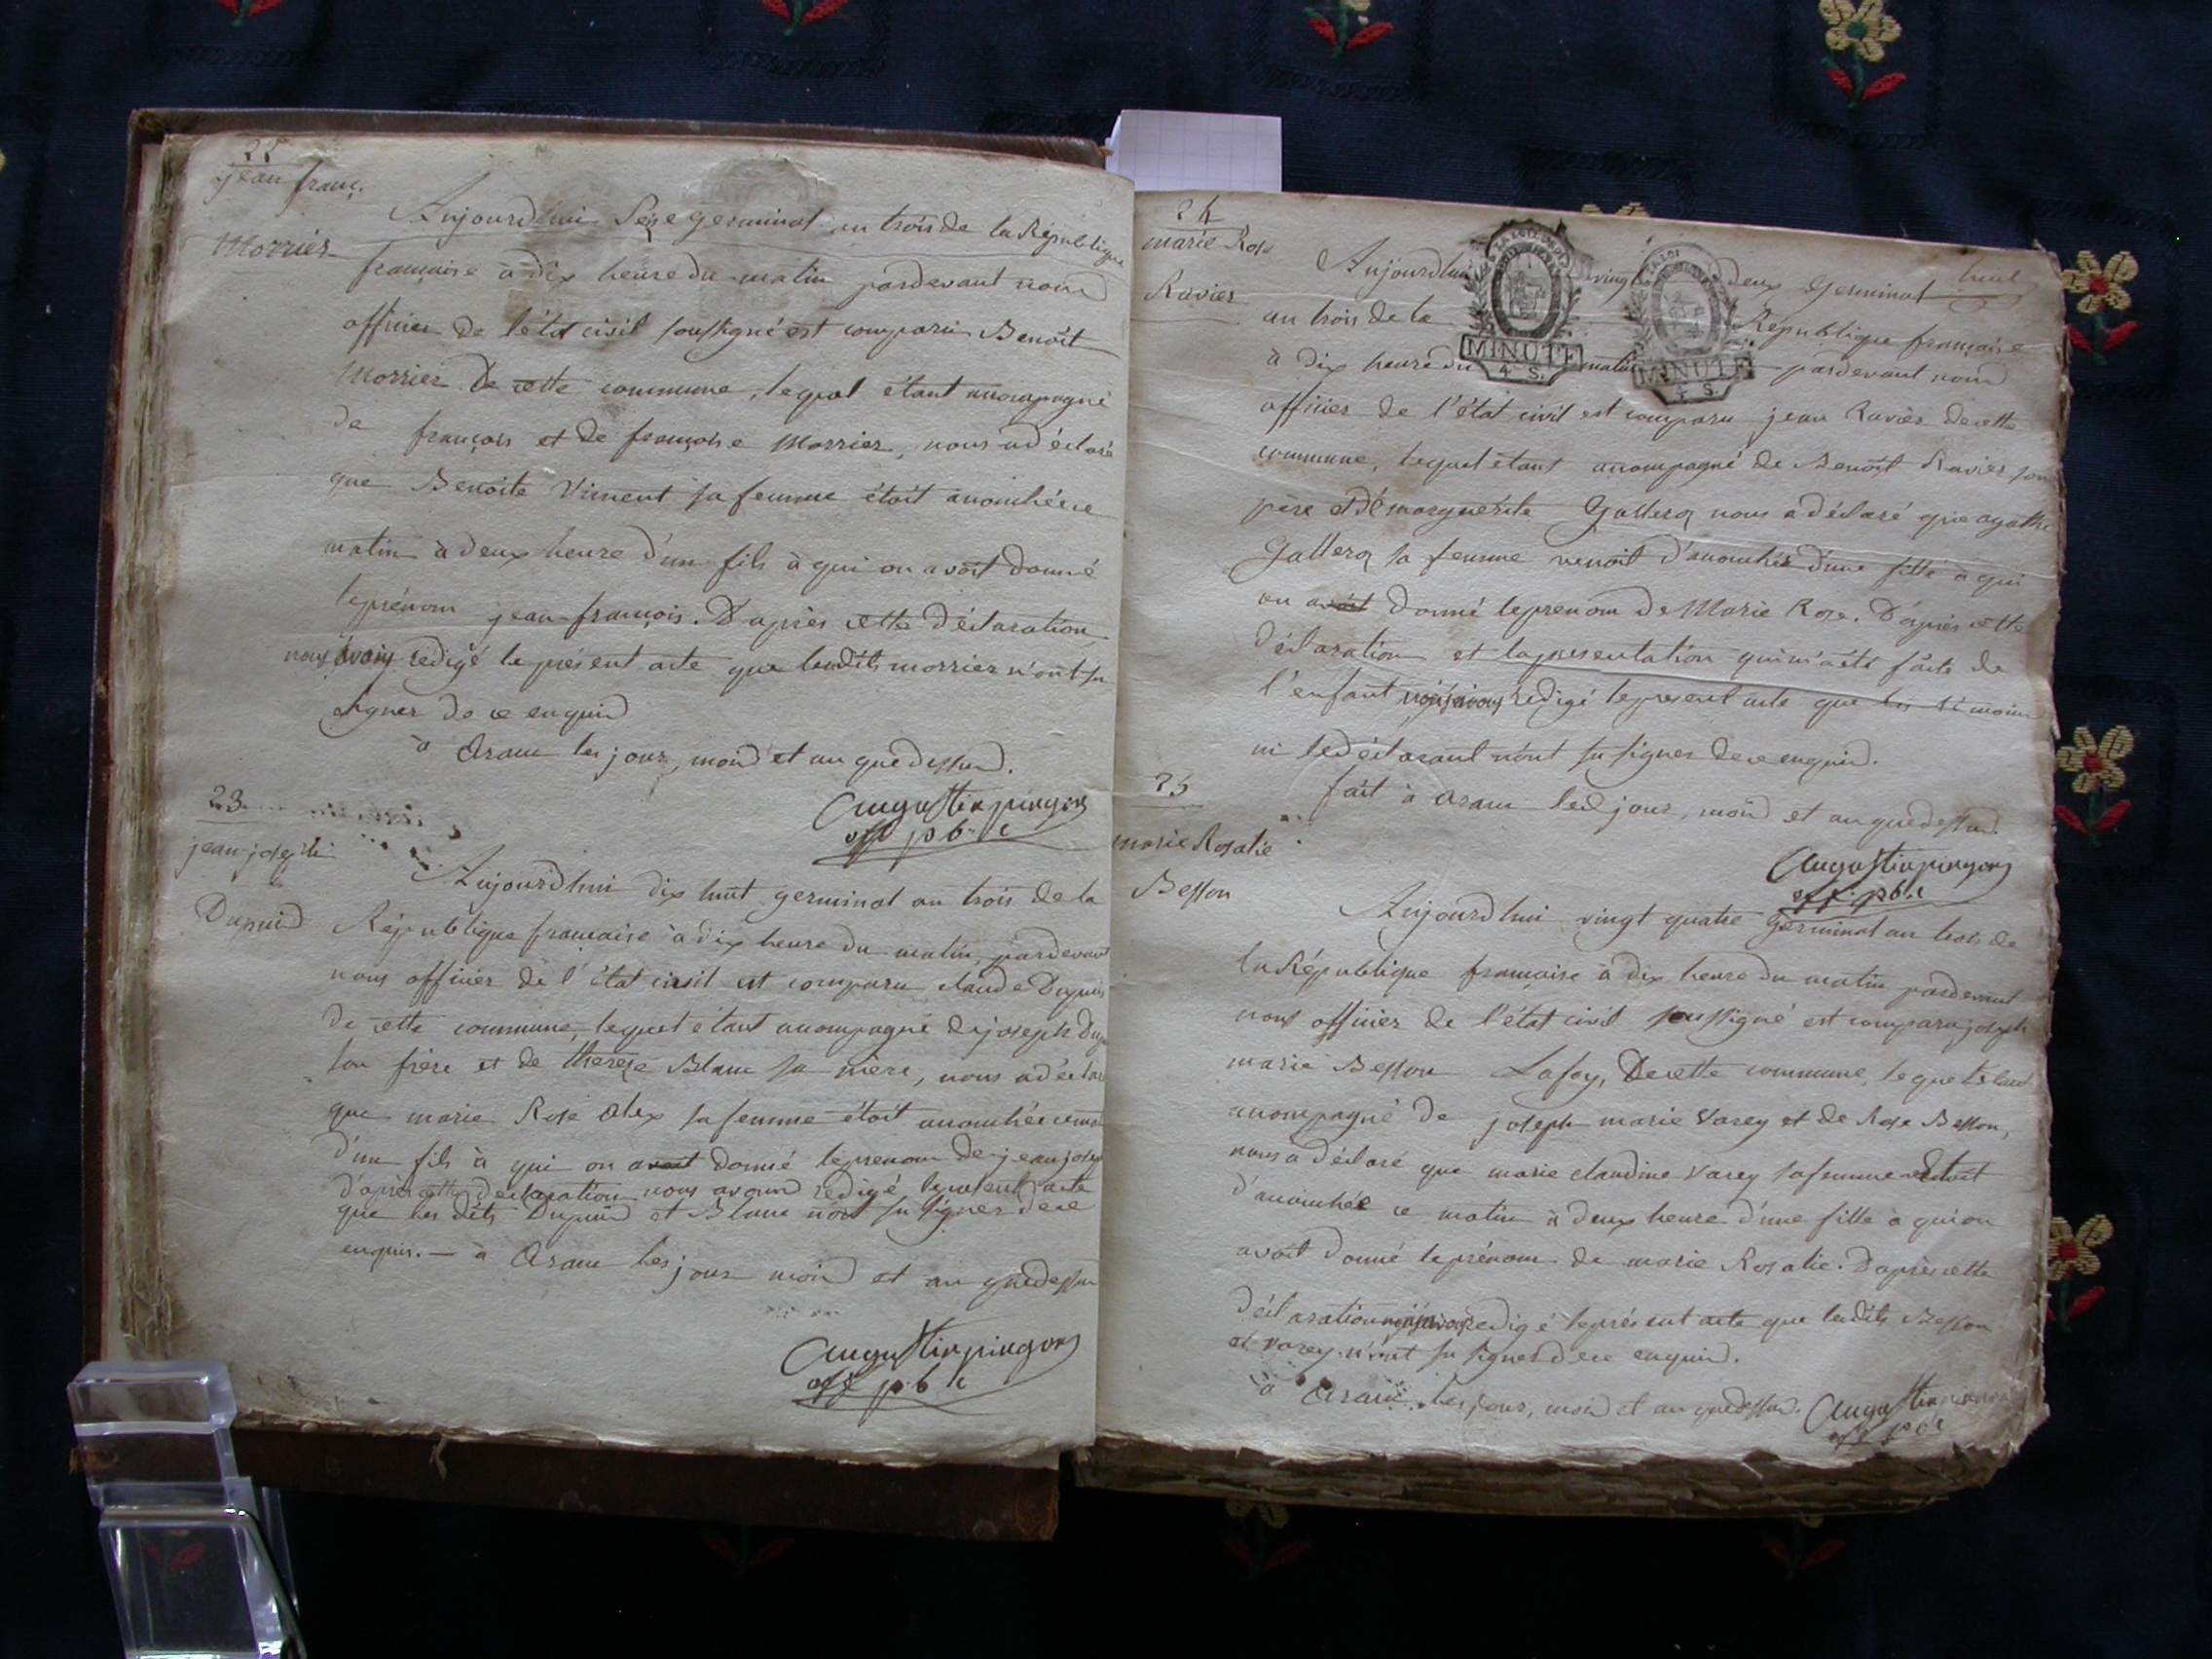 22
jean franç.
Morrier
Aujourdhui Seize germinal an trois de la République
française à dix heure du matin pardevant nous
officier de létat civil soussigné est comparu Benoît
Morrier De cette commune, lequel étant accompagné
de françois et de françoise Morrier, nous a déclaré
que Benoite Viment sa femme étoit accouchée ce
matin à deux heure d'un fils à qui on avoit donné
leprénom jean-françois. D'après cette déclaration
nous avons redigé le présent acte que lesdits morrier n'ont su
signer de ce enquis
à les jour, mois et an que dessus.
Augustin pingon
off pblc
23
jean-joseph
Dupuis
Aujourdhui dix huit germinal an trois de la
République francaise à dix heure du matin, pardevant
nous officier de l'état civil est comparu claude Dupuis
de cette commune, lequel étant accompagné de joseph
son frère et de thereze Blanc sa mère, nous a déclaré
que marie Rose Alex sa femme étoit accouchée
d'un fils à qui on avoit donné leprenom de jean joseph
d'après cette declaration nous avons redigé le présent acte
que les dits Dupuis et Blanc n'ont su signer de ce
enquis. — à les jour mois et an que dessus
Augustin pingon
off pblc
24
marie Rose
Ravier
Aujourdhui vingt deux Germinal
an trois de la République française
à dix heure du matin pardevant nous
MINUTE
4 S.
MINUTE
4 S.
officier de l'état civil est comparu jean Ravier de cette
commune, lequel étant accompagné de Benoît Ravier son
père et de marguerite Gallera nous a déclaré que agathe
Gallera sa femme venoit d'accoucher d'une fille à qui
on avoit donné leprenom de Marie Rose. D'après cette
déclaration et la presentation qui m'a été faite de
l'enfant nous avons redigé le present acte que les témoins
ni le déclarant n'ont su signer de ce enquis.
fait à les jour, mois et an que dessus.
Augustin pingon
off. pblc
25
marie Rosalie
Besson
Aujourdhui vingt quatre Germinal an trois de
la République francaise à dix heure du matin pardevant
nous officier de l'état civil soussigné est comparu joseph
marie Besson Lafay, De cette commune, lequel étant
accompagné de joseph marie Varey et de Rose Besson,
nous a déclaré que marie claudine Varey sa femme Etoit
d'accouchée ce matin à deux heure d'une fille à qui on
avoit donné le prénom de marie Rosalie. D'après cette
déclaration nous avons redigé le présent acte que lesdits Besson
et varey n'ont su signer de ce enquis.
à les jour, mois et an que dessus. Augustin pingon
off pblc